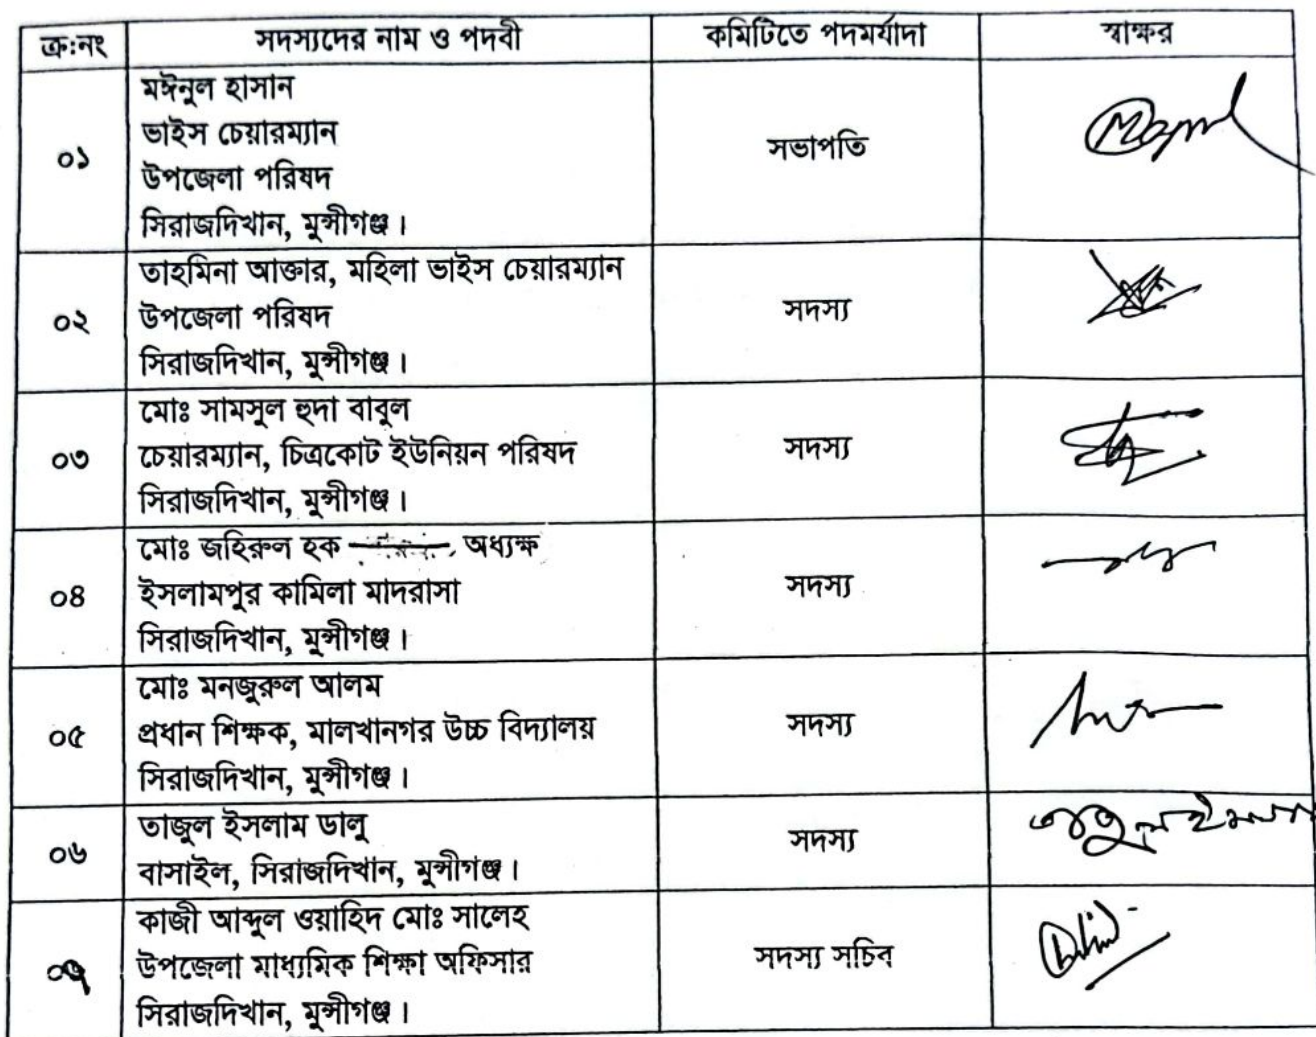 ক্র:নং সদস্যদের নাম ও পদবী কমিটিতে পদমর্যাদা স্বাক্ষর
০১ মঈনুল হাসান
ভাইস চেয়ারম্যান
উপজেলা পরিষদ
সিরাজদিখান, মুন্সীগঞ্জ।
সভাপতি
০২ তাহমিনা আক্তার, মহিলা ভাইস চেয়ারম্যান
উপজেলা পরিষদ
সিরাজদিখান, মুন্সীগঞ্জ।
সদস্য
০৩ মোঃ সামসুল হুদা বাবুল
চেয়ারম্যান, চিত্রকোট ইউনিয়ন পরিষদ
সিরাজদিখান, মুন্সীগঞ্জ।
সদস্য
০৪ মোঃ জহিরুল হক , অধ্যক্ষ
ইসলামপুর কামিলা মাদরাসা
সিরাজদিখান, মুন্সীগঞ্জ।
সদস্য
০৫ মোঃ মনজুরুল আলম
প্রধান শিক্ষক, মালখানগর উচ্চ বিদ্যালয়
সিরাজদিখান, মুন্সীগঞ্জ।
সদস্য
০৬ তাজুল ইসলাম ডালু
বাসাইল, সিরাজদিখান, মুন্সীগঞ্জ।
সদস্য
০৭ কাজী আব্দুল ওয়াহিদ মোঃ সালেহ
উপজেলা মাধ্যমিক শিক্ষা অফিসার
সিরাজদিখান, মুন্সীগঞ্জ।
সদস্য সচিব